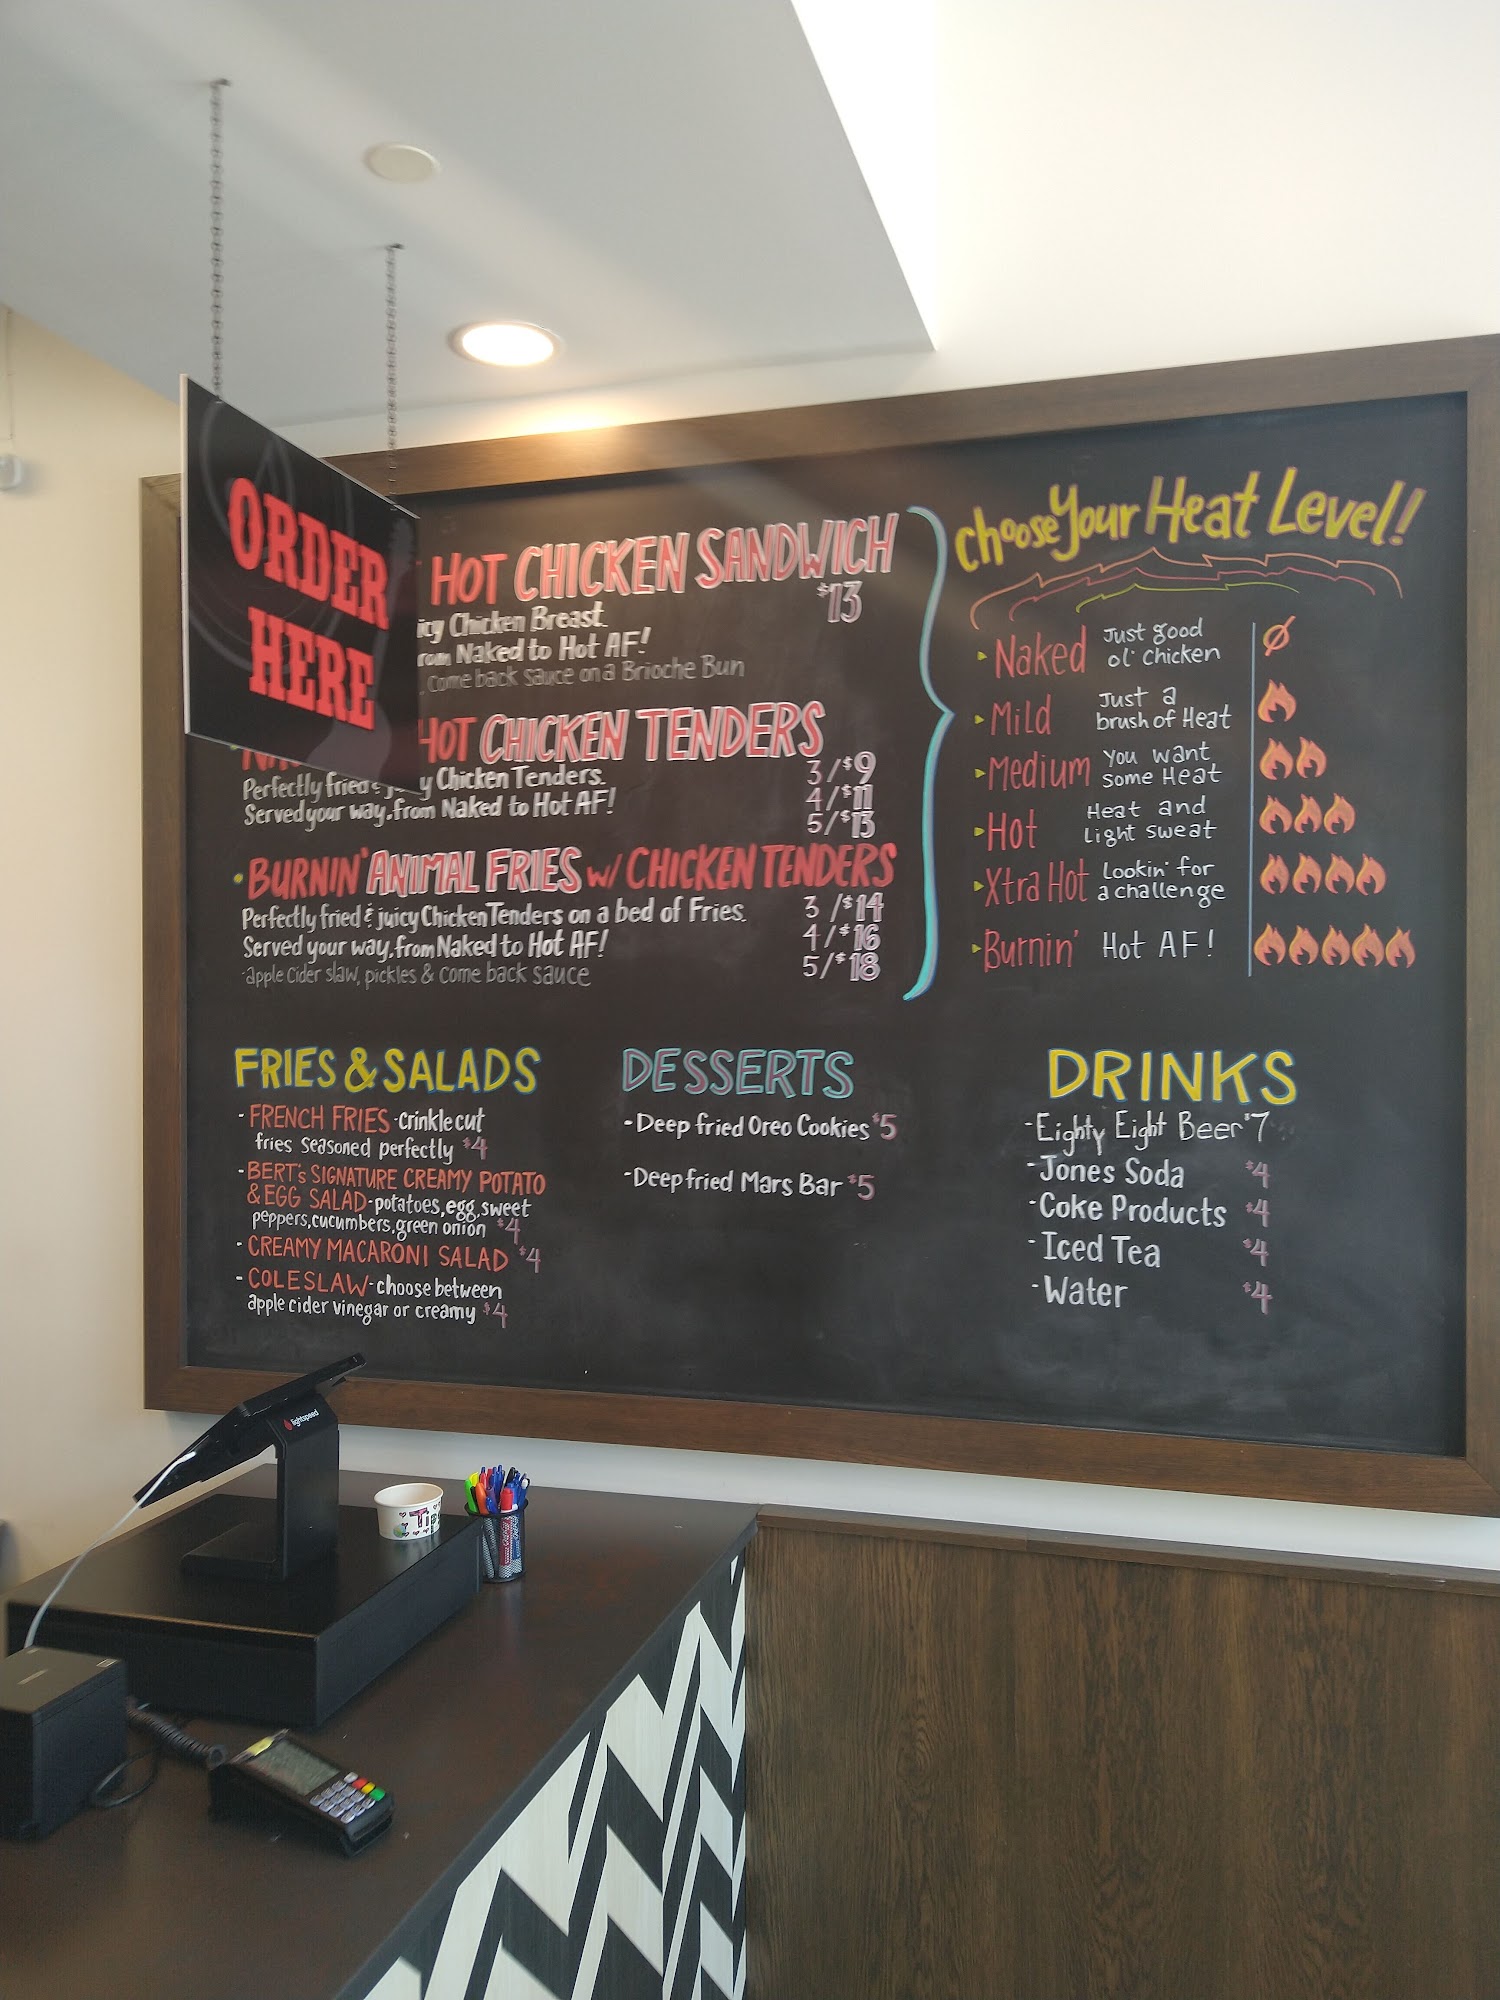 ORDER
HERE
HOT CHICKEN SANDWICH
$13
Chicken Breast.
Naked to Hot AF!
come back sauce on a Brioche Bun
HOT CHICKEN TENDERS
Perfectly fried & Chicken Tenders. 3/$9
Served your way, from Naked to Hot AF! 4/$11
5/$13
• BURNIN' ANIMAL FRIES w/ CHICKEN TENDERS
Perfectly fried & juicy Chicken Tenders on a bed of Fries. 3/$14
Served your way, from Naked to Hot AF! 4/$16
-apple cider slaw, pickles & come back sauce 5/$18
Choose Your Heat Level!
Naked Just good
ol' chicken
Mild Just a
brush of Heat
Medium You want
some Heat
Hot Heat and
Light sweat
Xtra Hot Lookin' for
a challenge
Burnin' Hot AF!
FRIES & SALADS
- FRENCH FRIES - crinkle cut
fries seasoned perfectly $4
- BERT's SIGNATURE CREAMY POTATO
& EGG SALAD - potatoes, egg, sweet
peppers, cucumbers, green onion $4
- CREAMY MACARONI SALAD $4
- COLESLAW - choose between
apple cider vinegar or creamy $4
DESSERTS
- Deep fried Oreo Cookies $5
- Deep fried Mars Bar $5
DRINKS
- Eighty Eight Beer $7
- Jones Soda $4
- Coke Products $4
- Iced Tea $4
- Water $4
lightspeed